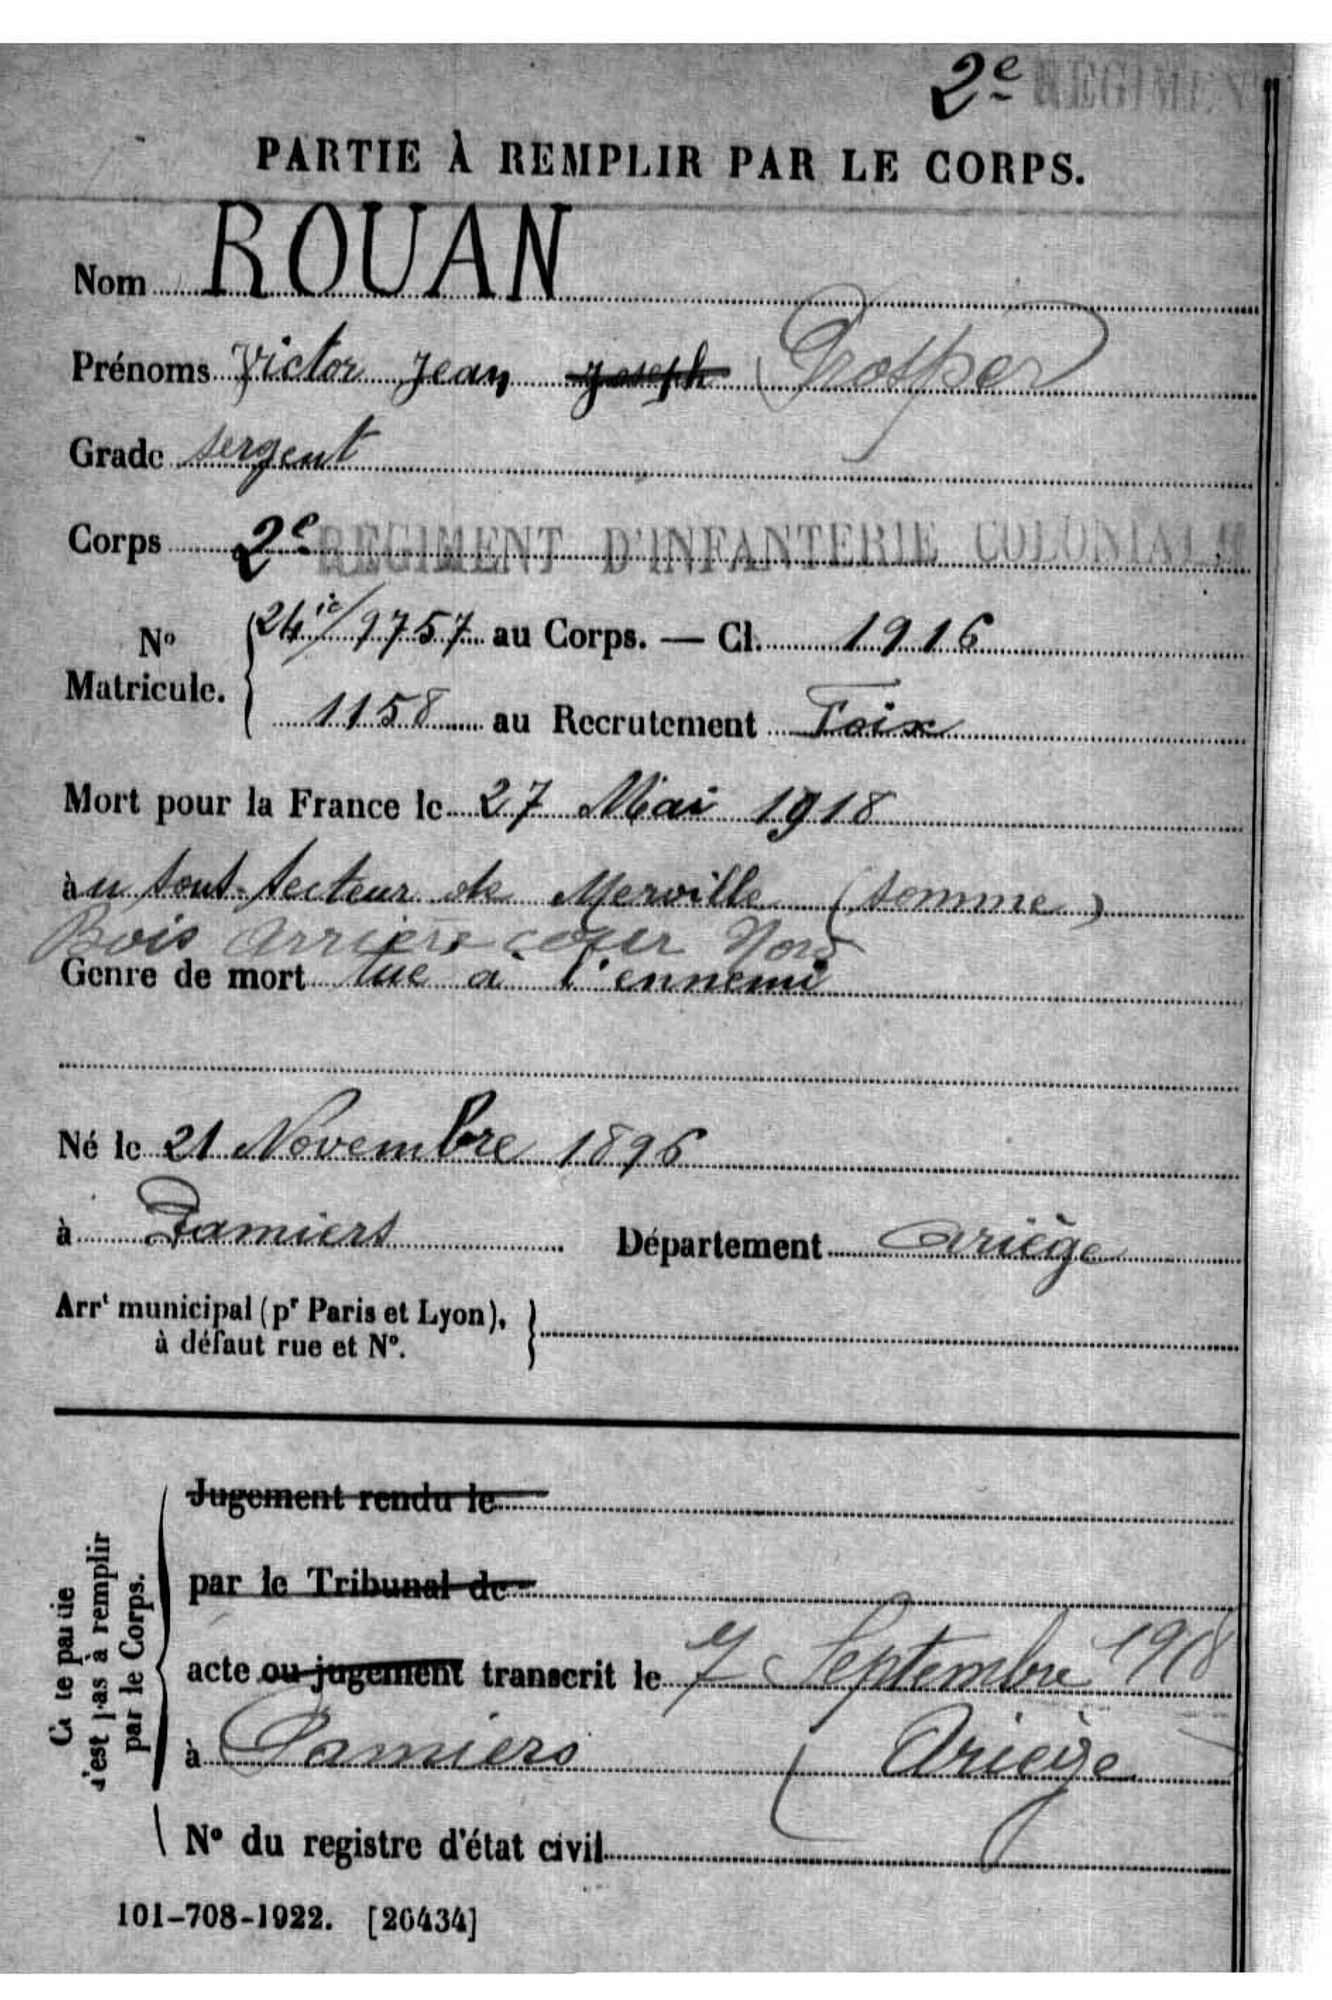 2e REGIMENT
PARTIE À REMPLIR PAR LE CORPS.
Nom ROUAN
Prénoms Victor Jean Joseph Prosper
Grade sergent
Corps 2e REGIMENT D'INFANTERIE COLONIALE
No Matricule. 24ic/9757 au Corps. — Cl. 1916
1158 au Recrutement Foix
Mort pour la France le 27 Mai 1918
au sous-secteur de Merville (Somme)
Bois Arrière cour Nord
Genre de mort tué à l'ennemi
Né le 21 Novembre 1896
à Pamiers Département Ariège
Arrt municipal (pr Paris et Lyon),
à défaut rue et No.
Jugement rendu le
par le Tribunal de
acte ou jugement transcrit le 7 Septembre 1918
à Pamiers (Ariège
No du registre d'état civil
Ce te partie
n'est pas à remplir
par le Corps.
101-708-1922. [26434]